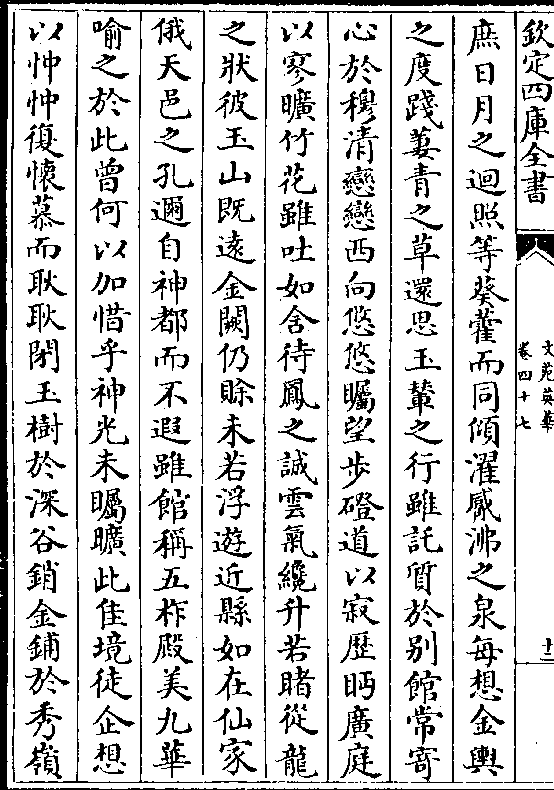 欽定四庫全書
文苑英華
卷四十七
十二
庶日月之迴照等葵藿而同傾濯感沸之泉每想金輿
之度踐萋青之草還思玉輦之行雖託質於别館常寄
心於穆清戀戀西向悠悠矚望步磴道以寂歴眄廣庭
以寥曠竹花雖吐如含待鳳之誠雲氣纔升若睹從龍
之狀彼玉山既逺金闕仍賖未若浮遊近縣如在仙家
俄天邑之孔邇自神都而不遐雖館稱五柞殿美九華
喻之於此曾何以加惜乎神光未矚曠此佳境徒企想
以忡忡復懐慕而耿耿閉玉樹於深谷銷金鋪於秀嶺